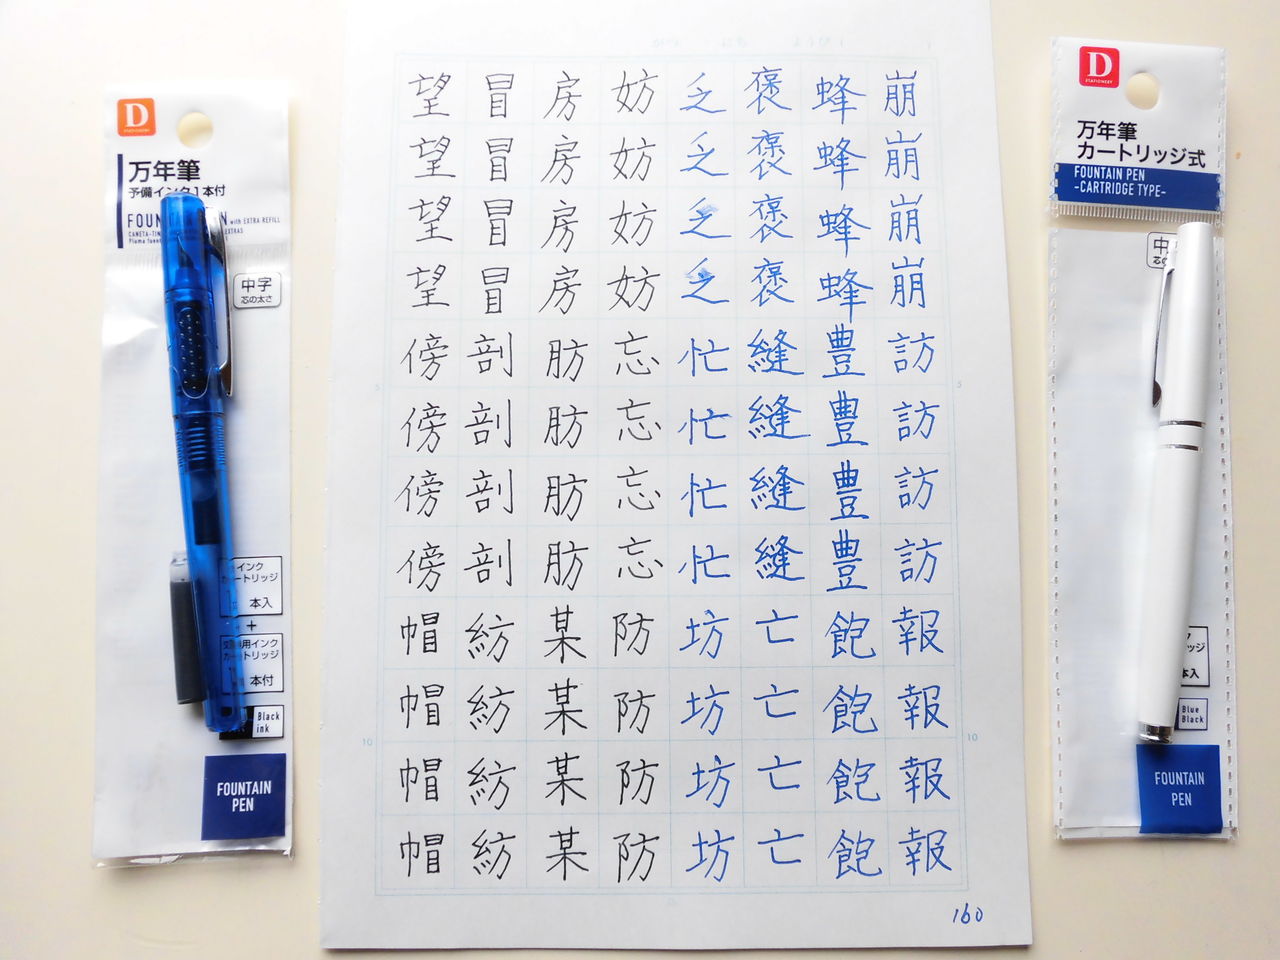 D
STATIONERY
万年筆
予備インク1本付
FOUNTAIN PEN with EXTRA REFILL
中字
芯の太さ
インク
カートリッジ
本入
+
交換用インク
カートリッジ
本付
Black
ink
FOUNTAIN
PEN
崩崩崩崩訪訪訪訪報報報報
蜂蜂蜂蜂豊豊豊豊飽飽飽飽
褒褒褒褒縫縫縫縫亡亡亡亡
乏乏乏乏忙忙忙忙坊坊坊坊
妨妨妨妨忘忘忘忘防防防防
房房房房肪肪肪肪某某某某
冒冒冒冒剖剖剖剖紡紡紡紡
望望望望傍傍傍傍帽帽帽帽
5
5
10
10
160
D
STATIONERY
万年筆
カートリッジ式
FOUNTAIN PEN
-CARTRIDGE TYPE-
中
本入
Blue
Black
FOUNTAIN
PEN